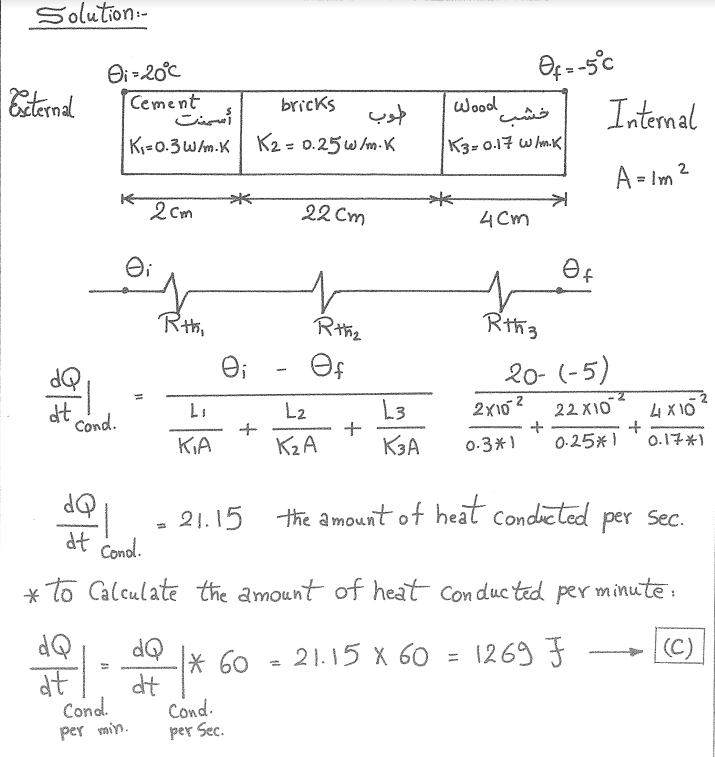 Solution:-
θi = 20°C
θf = -5°C
External
Cement أسمنت
bricks طوب
Wood خشب
Internal
K1=0.3 W/m.K
K2 = 0.25 W/m.K
K3=0.17 W/m.K
A = 1m²
2 Cm
22 Cm
4 Cm
θi
θf
Rth1
Rth2
Rth3
dQ/dt | Cond. = (θi - θf) / (L1/K1A + L2/K2A + L3/K3A) (20-(-5)) / (2×10⁻²/0.3*1 + 22×10⁻²/0.25*1 + 4×10⁻²/0.17*1)
dQ/dt | Cond. = 21.15 the amount of heat conducted per sec.
* To Calculate the amount of heat conducted per minute:
dQ/dt | Cond. per min. = dQ/dt | Cond. per Sec. * 60 = 21.15 × 60 = 1269 J → (C)